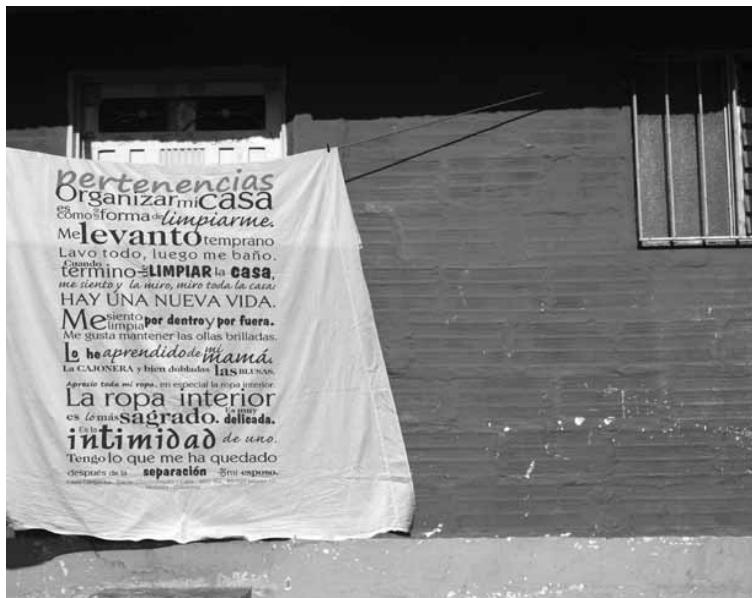 pertenencias
Organizar mi casa
es como una forma de limpiarme.
Me levanto temprano
Lavo todo, luego me baño.
Cuando termino de LIMPIAR la casa,
me siento y la miro, miro toda la casa:
HAY UNA NUEVA VIDA.
Me siento limpia por dentro y por fuera.
Me gusta mantener las ollas brilladas.
Lo he aprendido de mi mamá.
La CAJONERA y bien dobladas las BLUSAS.
Aprecio toda mi ropa, en especial la ropa interior.
La ropa interior
es lo más sagrado. Es muy delicada.
Es la intimidad de uno.
Tengo lo que me ha quedado
después de la separación de mi esposo.